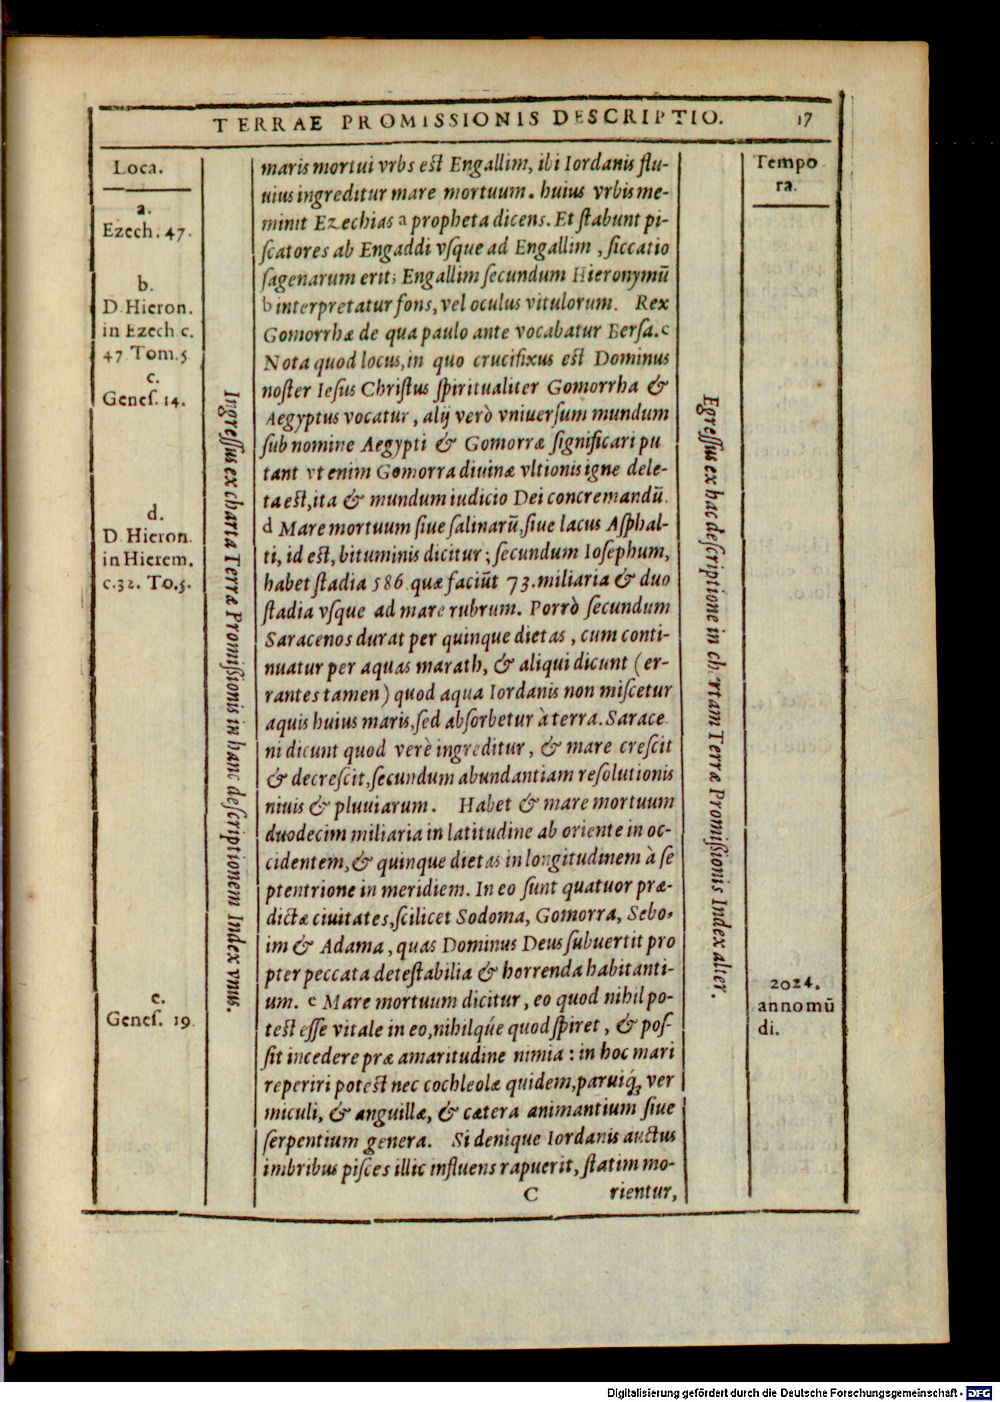 TERRAE PROMISSIONIS DESCRIPTIO. 17
Loca.
a.
Ezech. 47.
b.
D. Hieron.
in Ezech c.
47 Tom. 5
c.
Genes. 14.
d.
D. Hieron.
in Hierem.
c. 32. To. 5.
e.
Genes. 19.
Ingreſſus ex charta Terræ Promiſſionis in hanc deſcriptionem Index vnus.
maris mortui vrbs eſt Engallim, ibi Iordanis flu-
uius ingreditur mare mortuum. huius vrbis me-
minit Ezechias a propheta dicens. Et ſtabunt pi-
ſcatores ab Engaddi vſque ad Engallim, ſiccatio
ſagenarum erit; Engallim ſecundum Hieronymū
b interpretatur fons, vel oculus vitulorum. Rex
Gomorrhæ de qua paulo ante vocabatur Berſa. c
Nota quod locus, in quo crucifixus eſt Dominus
noſter Ieſus Chriſtus ſpiritualiter Gomorrha &
Aegyptus vocatur, alij verò vniuerſum mundum
ſub nomine Aegypti & Gomorræ ſignificari pu
tant vt enim Gomorra diuinæ vltionis igne dele-
ta eſt, ita & mundum iudicio Dei concremandū.
d Mare mortuum ſiue ſalinarū, ſiue lacus Aſphal-
ti, id eſt, bituminis dicitur; ſecundum Ioſephum,
habet ſtadia 586. quæ faciūt 73. miliaria & duo
ſtadia vſque ad mare rubrum. Porrò ſecundum
Saracenos durat per quinque dietas, cum conti-
nuatur per aquas marath, & aliqui dicunt (er-
rantes tamen) quod aqua Iordanis non miſcetur
aquis huius maris, ſed abſorbetur à terra. Sarace
ni dicunt quod verè ingreditur, & mare creſcit
& decreſcit, ſecundum abundantiam reſolutionis
niuis & pluuiarum. Habet & mare mortuum
duodecim miliaria in latitudine ab oriente in oc-
cidentem, & quinque dietas in longitudinem à ſe
ptentrione in meridiem. In eo ſunt quatuor præ-
dictæ ciuitates, ſcilicet Sodoma, Gomorra, Sebo-
im & Adama, quas Dominus Deus ſubuertit pro
pter peccata deteſtabilia & horrenda habitanti-
um. e Mare mortuum dicitur, eo quod nihil po-
teſt eſſe vitale in eo, nihilq́ue quod ſpiret, & poſ-
ſit incedere præ amaritudine nimia: in hoc mari
reperiri poteſt nec cochleolæ quidem, paruiq́ꝫ ver
miculi, & anguillæ, & cætera animantium ſiue
ſerpentium genera. Si denique Iordanis auctus
imbribus piſces illic influens rapuerit, ſtatim mo-
C rientur,
Egreſſus ex hac deſcriptione in chartam Terræ Promiſſionis Index alter.
Tempo
ra.
2024.
anno mū
di.
Digitalisierung gefördert durch die Deutsche Forschungsgemeinschaft - DFG